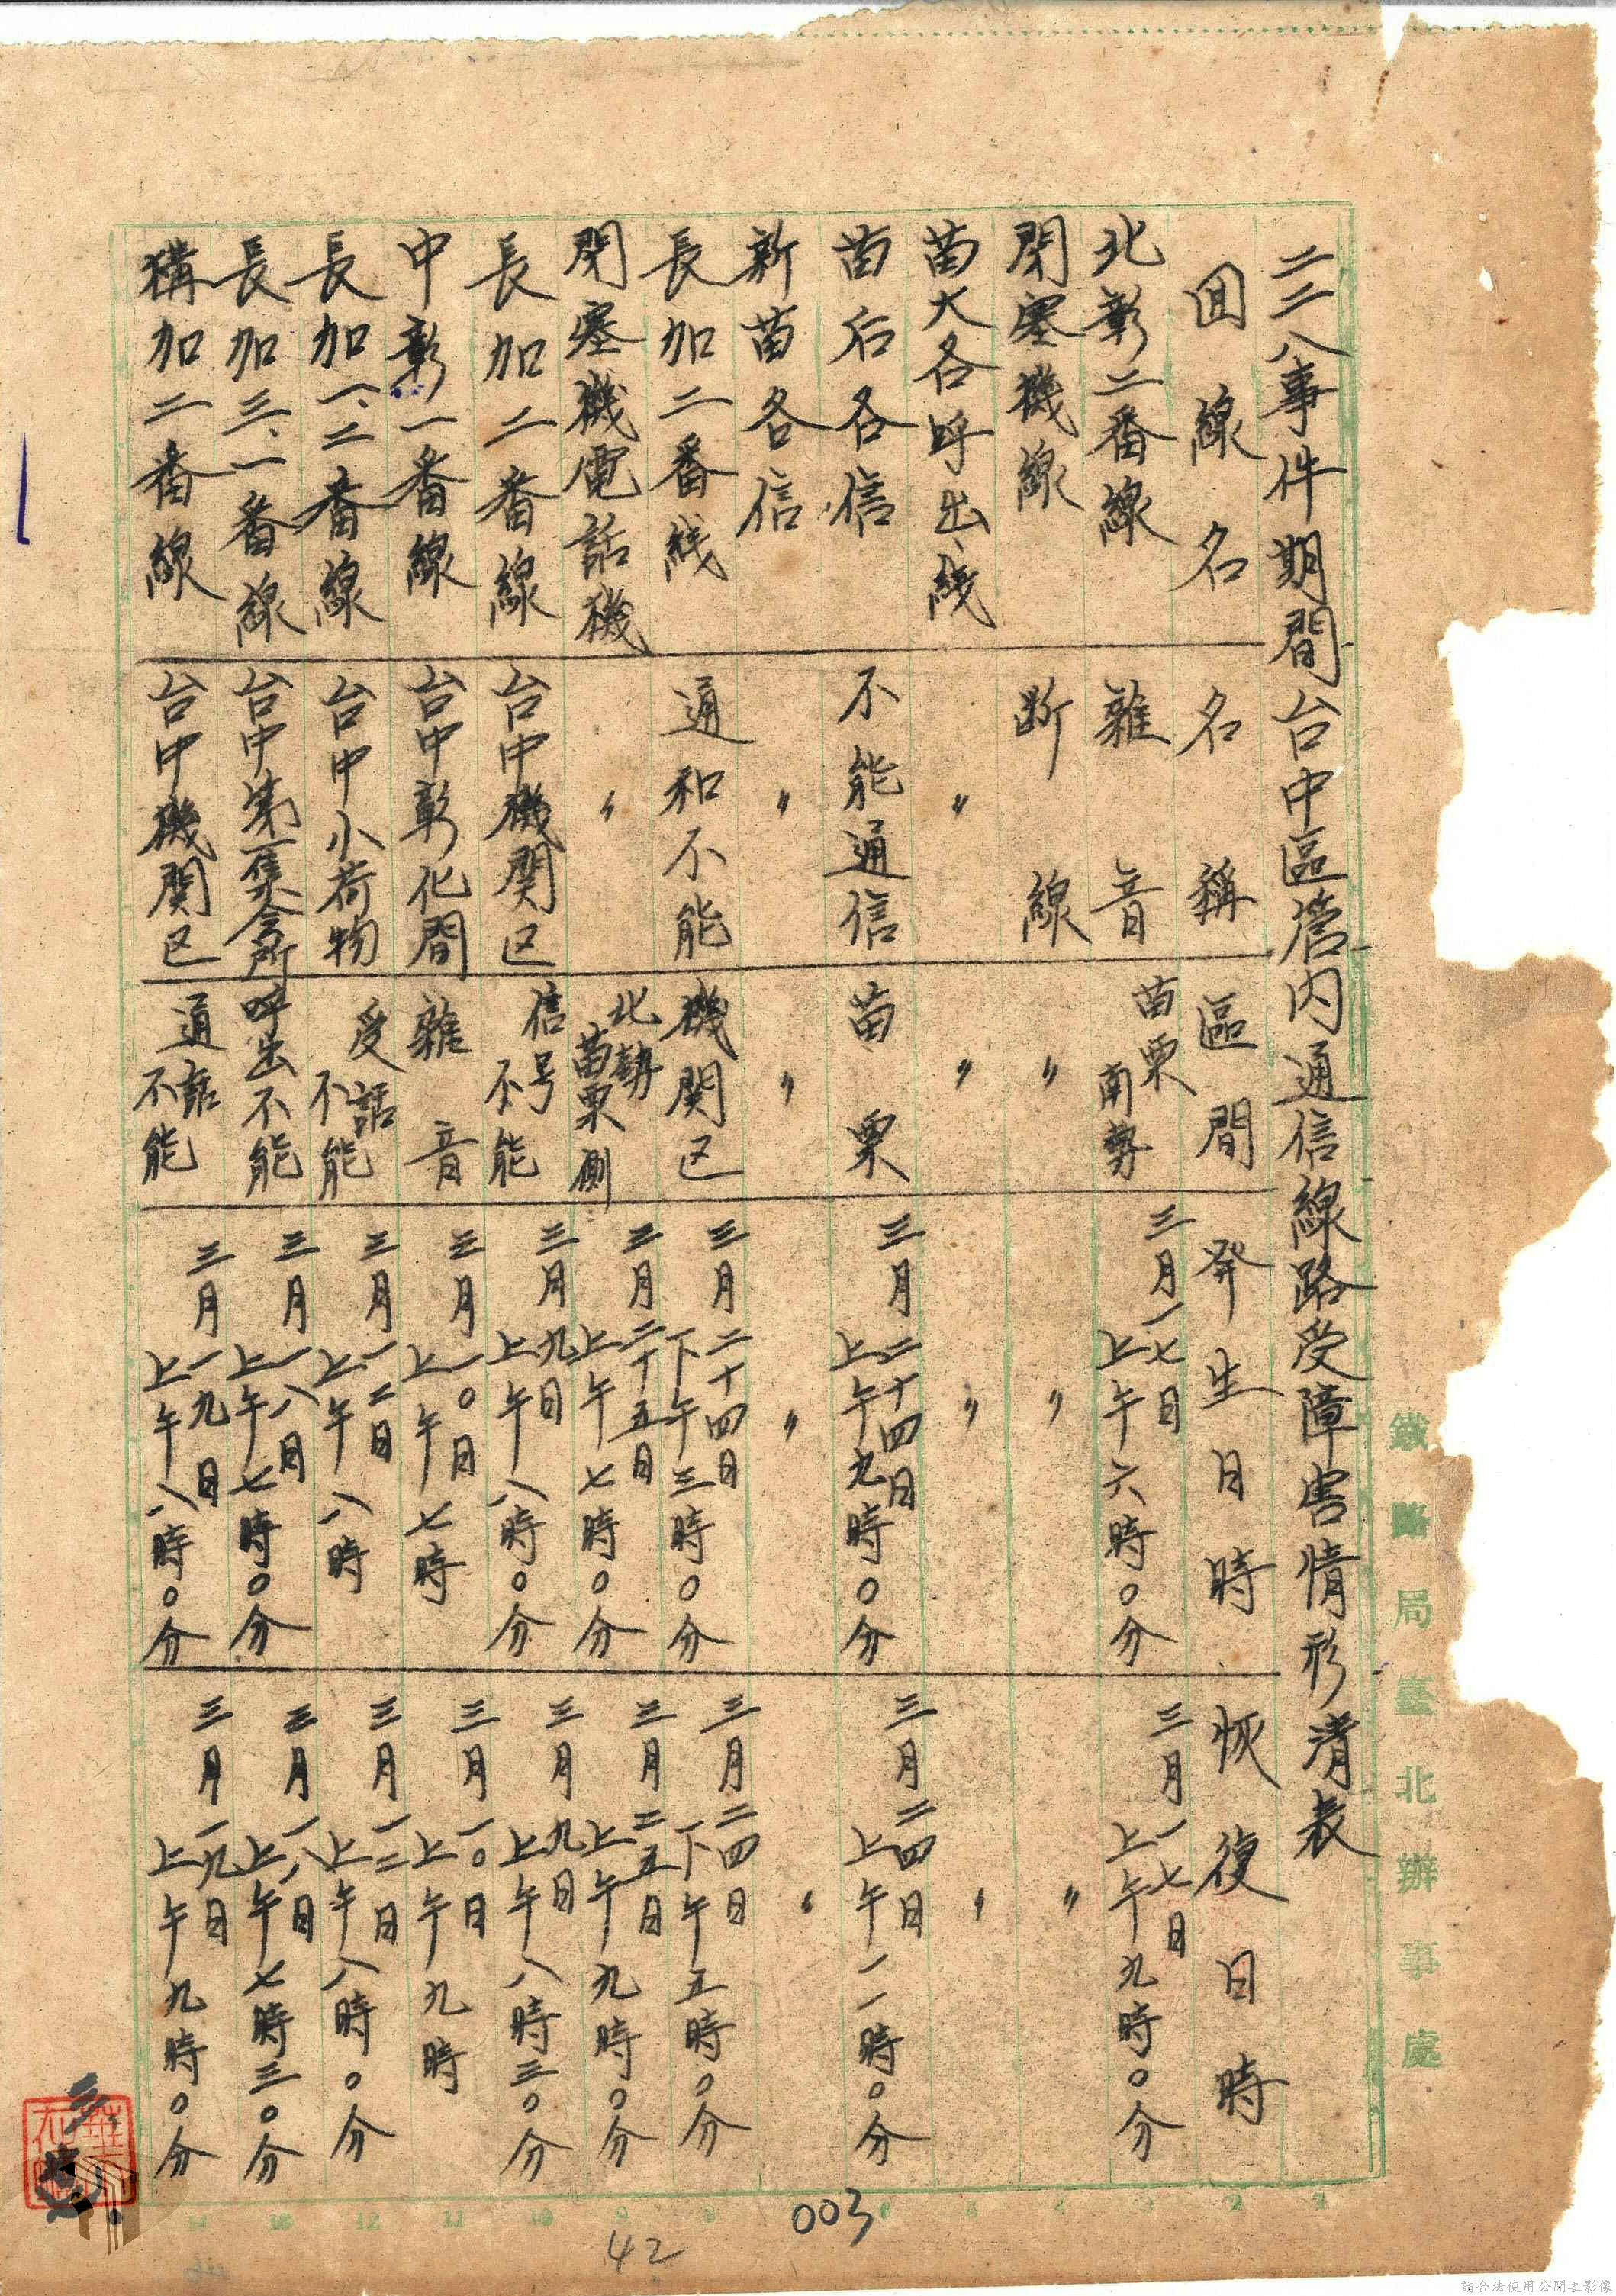 二二八事件期間台中區管內通信線路受障害情形清表
回線名 名稱 區間 発生日時 恢復日時
北彰二番線 雜音 苗栗南勢 三月一七日上午六時〇分 三月一七日上午九時〇分
閉塞機線 断線 〃 〃 〃
苗大各呼出線 〃 〃 〃 〃
苗后各信 不能通信 苗栗 三月二十四日上午九時〇分 三月二四日上午一一時〇分
新苗各信 〃 〃 〃 〃
長加二番线 通和不能 機関区 三月二十四日下午三時〇分 三月二四日下午五時〇分
閉塞機電話機 〃 北勢苗栗側 三月二十五日上午七時〇分 三月二五日上午九時〇分
長加二番線 台中機関区 信号不能 三月九日上午八時〇分 三月九日上午八時三〇分
中彰一番線 台中彰化間 雜音 三月一〇日上午七時 三月一〇日上午九時
長加一、二番線 台中小荷物 受話不能 三月一二日上午八時 三月一二日上午八時〇分
長加三、一番線 台中第一集会所 呼出不能 三月一八日上午七時〇分 三月一八日上午七時三〇分
構加二番線 台中機関区 通話不能 三月一九日上午八時〇分 三月一九日上午九時〇分
鐵路局臺北辦事處
003
42
請合法使用公開之影像